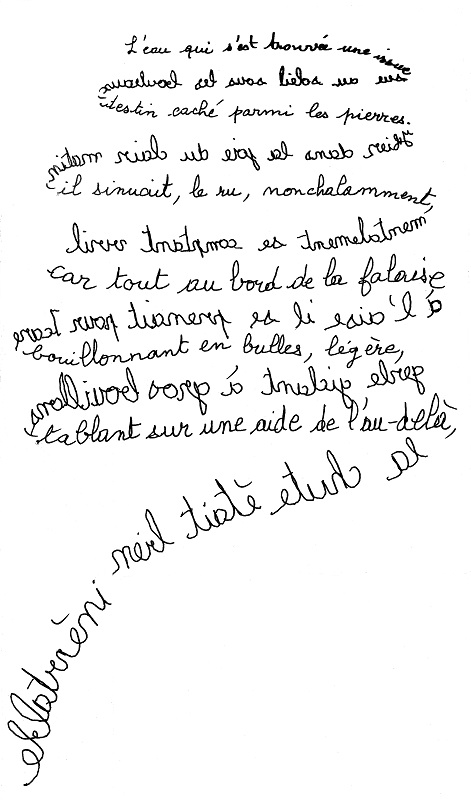 L'eau qui s'est trouvée une issue
soleil sous les bouleaux
destin caché parmi les pierres.
dans la joie du clair matin
il sinuait, le ru, nonchalamment,
mentalement se comptant
car tout au bord de la falaise
à l'aise il se prenait pour Icare
bouillonnant en bulles, légère,
gerbe giclant à gros bouillons,
tablant sur une aide de l'au-delà,
la chute était bien inéluctable